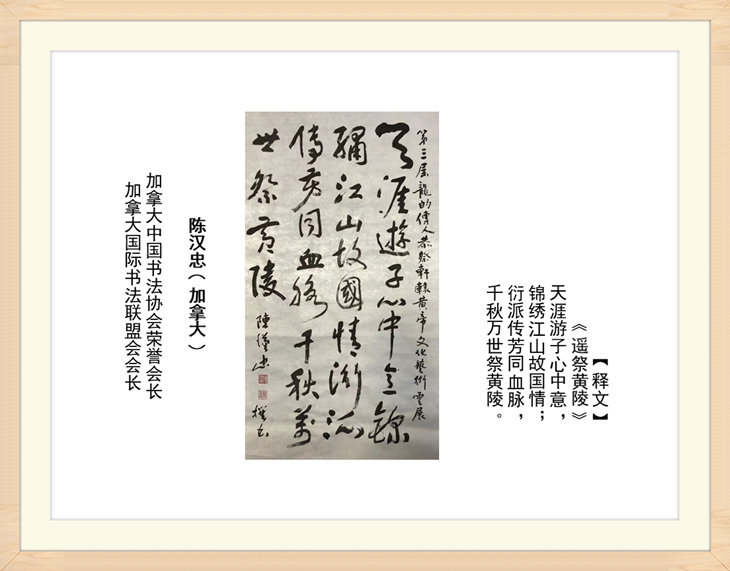 【释文】
《遥祭黄陵》
天涯游子心中意，
锦绣江山故国情；
衍派传芳同血脉，
千秋万世祭黄陵。
第三届龍的傳人恭祭軒轅黄帝文化藝術雲展
天涯遊子心中意錦
繡江山故國情衍派
傳芳同血脉千秋萬
世祭黄陵
陳漢忠
撰書
陈汉忠（加拿大）
加拿大中国书法协会荣誉会长
加拿大国际书法联盟会会长